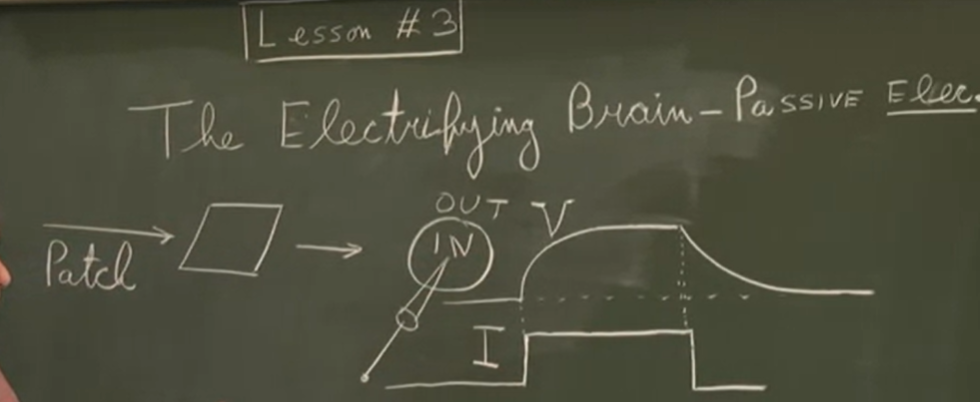 Lesson #3
The Electrifying Brain - Passive Elec.
Patch
OUT
IN
V
I